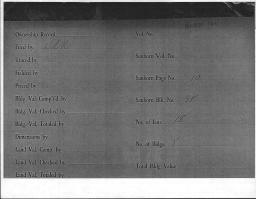 Ownership Record
Vol. No.
Filed by
Traced by
Sanborn Vol. No.
Indexed by
Sanborn Page No.
Priced by
Bldg. Val. Comp'd by
Sanborn Blk. No.
Bldg. Val. Checked by
Bldg. Val. Totaled by
No. of Lots
Dimensions by
No. of Bldgs.
Land Val. Comp. by
Land Val. Checked by
Total Bldg. Value
Land Val. Totaled by